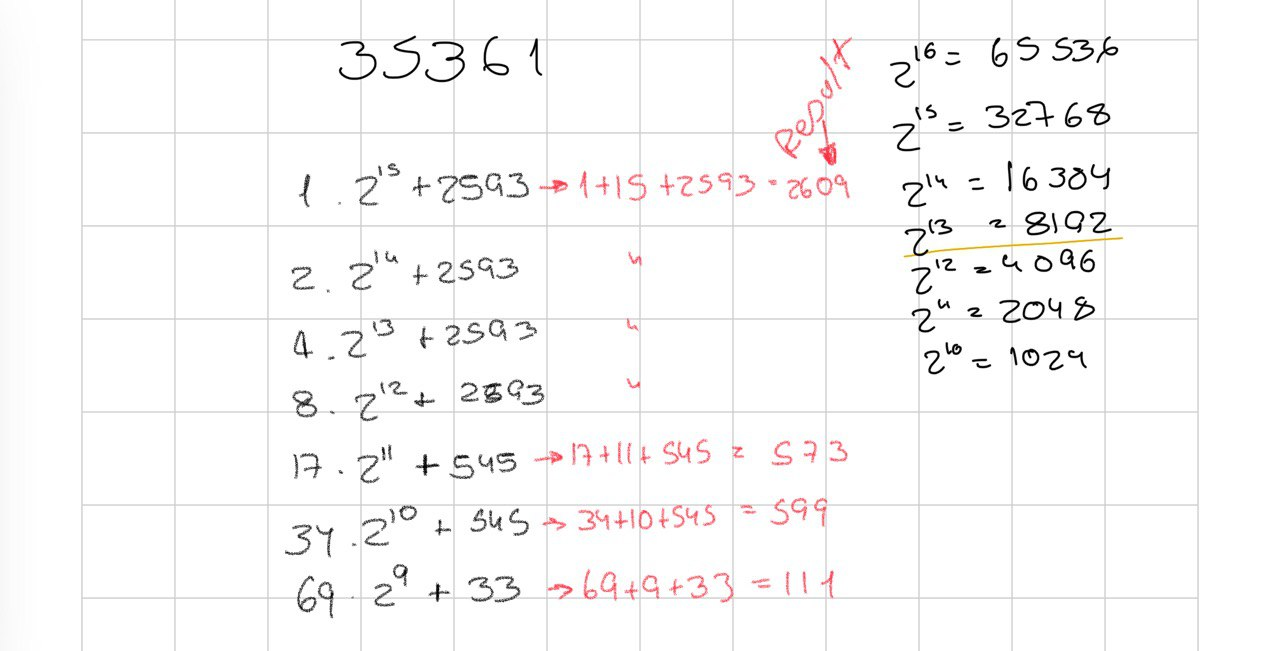 35361
Result
1 . 2^15 + 2593 → 1+15+2593 = 2609
2 . 2^14 + 2593 "
4 . 2^13 + 2593 "
8 . 2^12 + 2593 "
17 . 2^11 + 545 → 17+11+545 = 573
34 . 2^10 + 545 → 34+10+545 = 599
69 . 2^9 + 33 → 69+9+33 = 111
2^16 = 65536
2^15 = 32768
2^14 = 16304
2^13 = 8192
2^12 = 4096
2^11 = 2048
2^10 = 1024